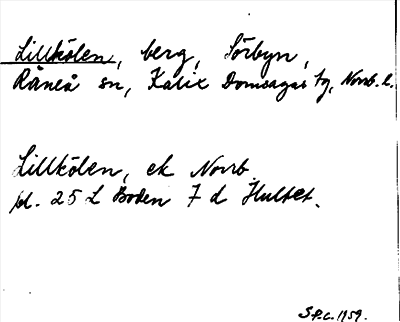 Lillkölen, berg, Sörbyn,
Råneå sn, Kalix Domsagas tg, Norrb. l.
Lillkölen, ek Norrb.
bl. 25 L Boden 7 d Hultet.
S.P.C. 1959.